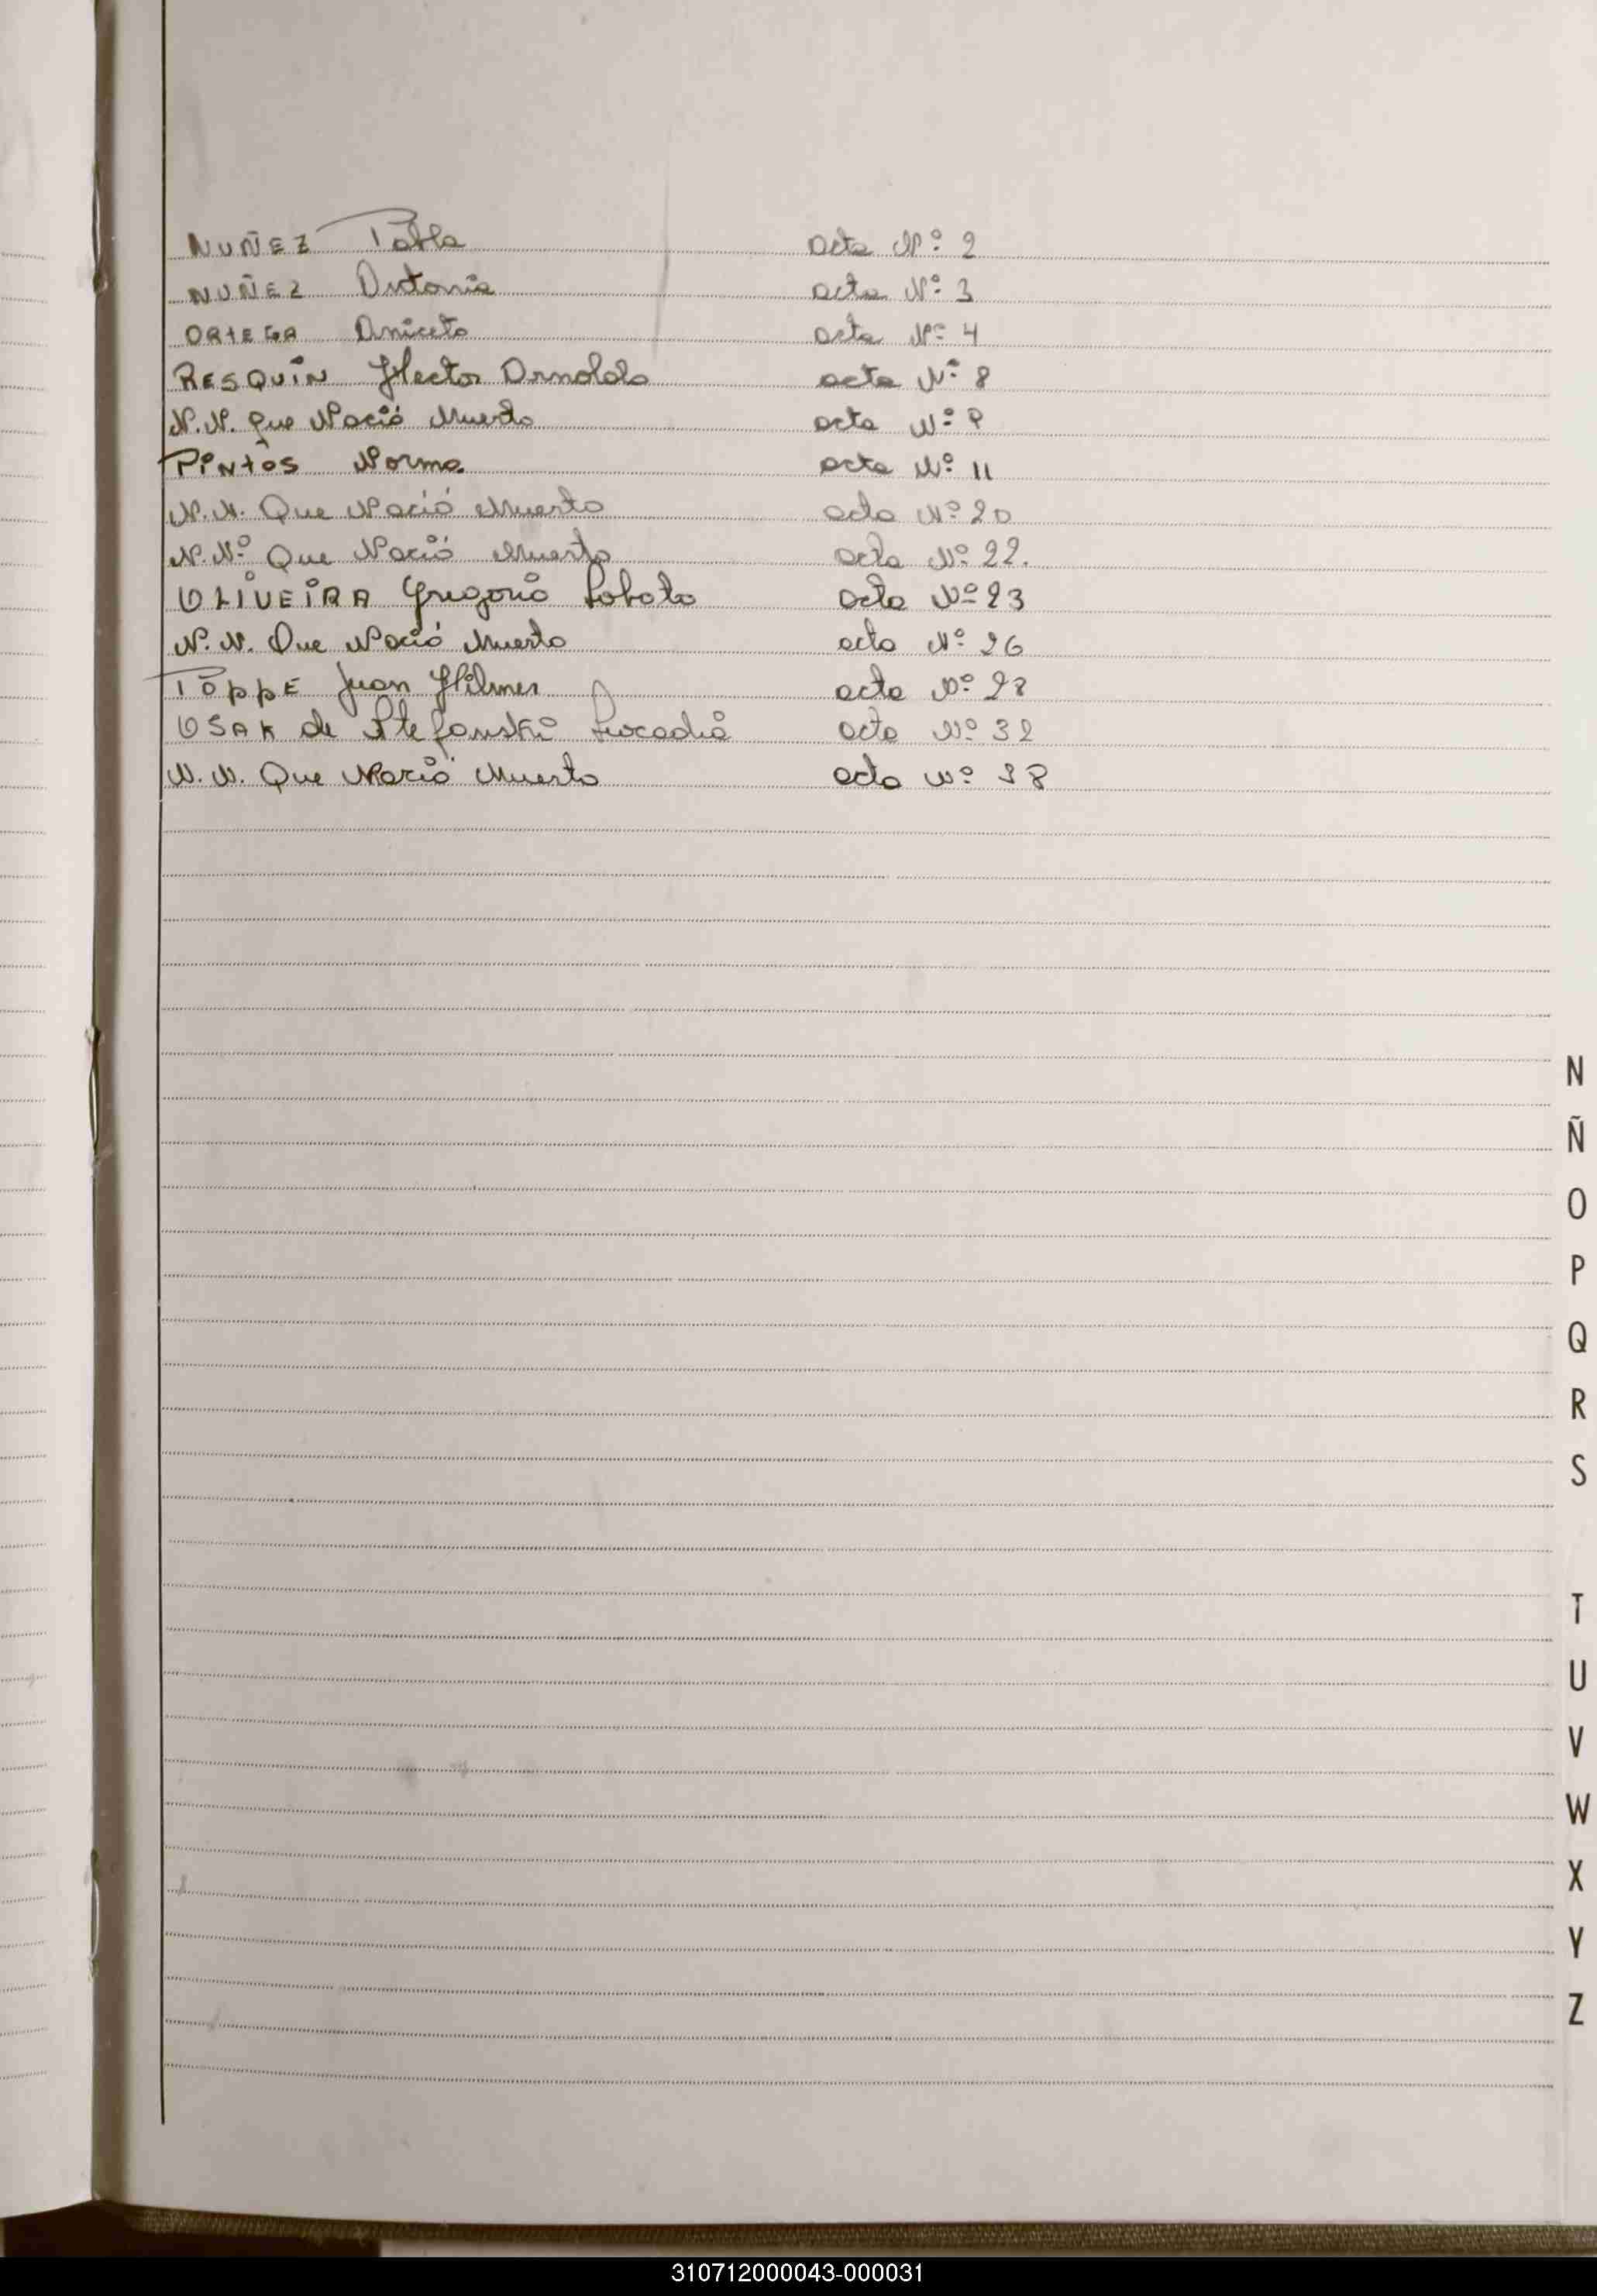 NUÑEZ Pabla acta Nº: 2
NUÑEZ Antonia acta Nº: 3
ORTEGA Aniceto acta Nº 4
RESQUIN Hector Arnoldo acta Nº 8
N.N. que Nació Muerto acta Nº 9
PINTOS Norma acta Nº 11
N.N. Que Nació Muerto acta Nº 20
N.Nº Que Nació Muerto acta Nº 22.
OLIVEIRA Gregorio Lobato acta Nº 23
N.N. Que Nació Muerto acta Nº 26
TÖPPE Juan Hilmer acta Nº 28
OSAK de Stefanski Leocadia acta Nº 32
N.N. Que Nació Muerto acta Nº 38
N
Ñ
O
P
Q
R
S
T
U
V
W
X
Y
Z
310712000043-000031